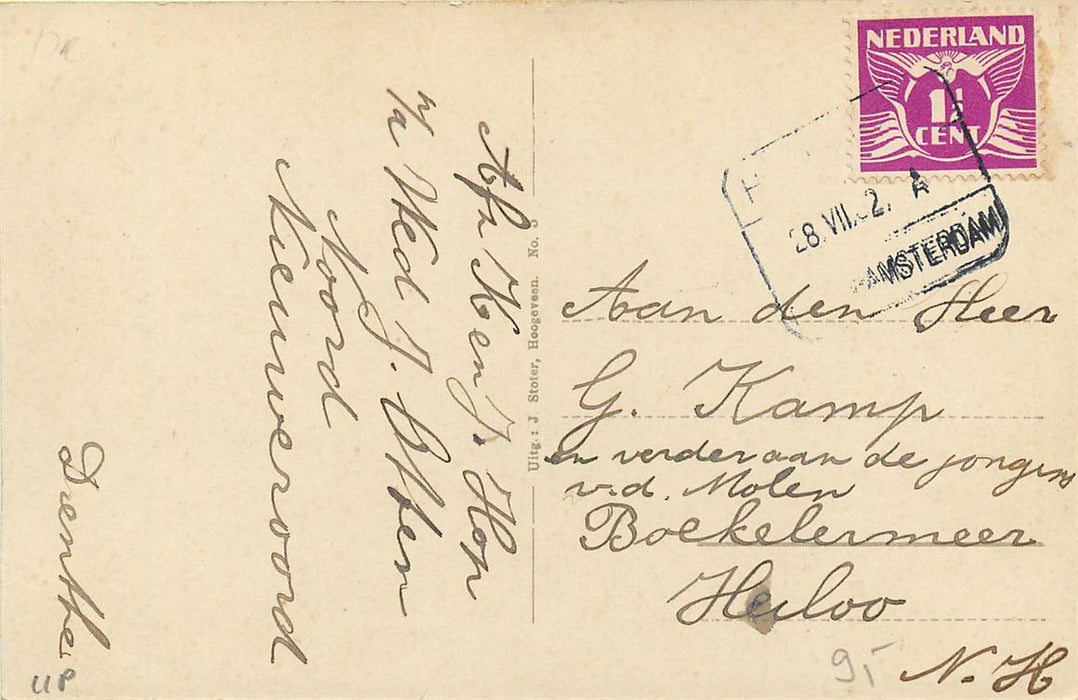 NEDERLAND
1½
CENT
28.VII.2. A
AMSTERDAM
Afz K en J. Hop
p/a Wed J. Otten
Noord
Nieuweroord
Drenthe
Uitg.: J. Stoter, Hoogeveen. No. 3
Aan den Heer
G. Kamp
en verder aan de jongens
v.d. Molen
Boekelermeer
Heiloo
N. H
9,-
UP